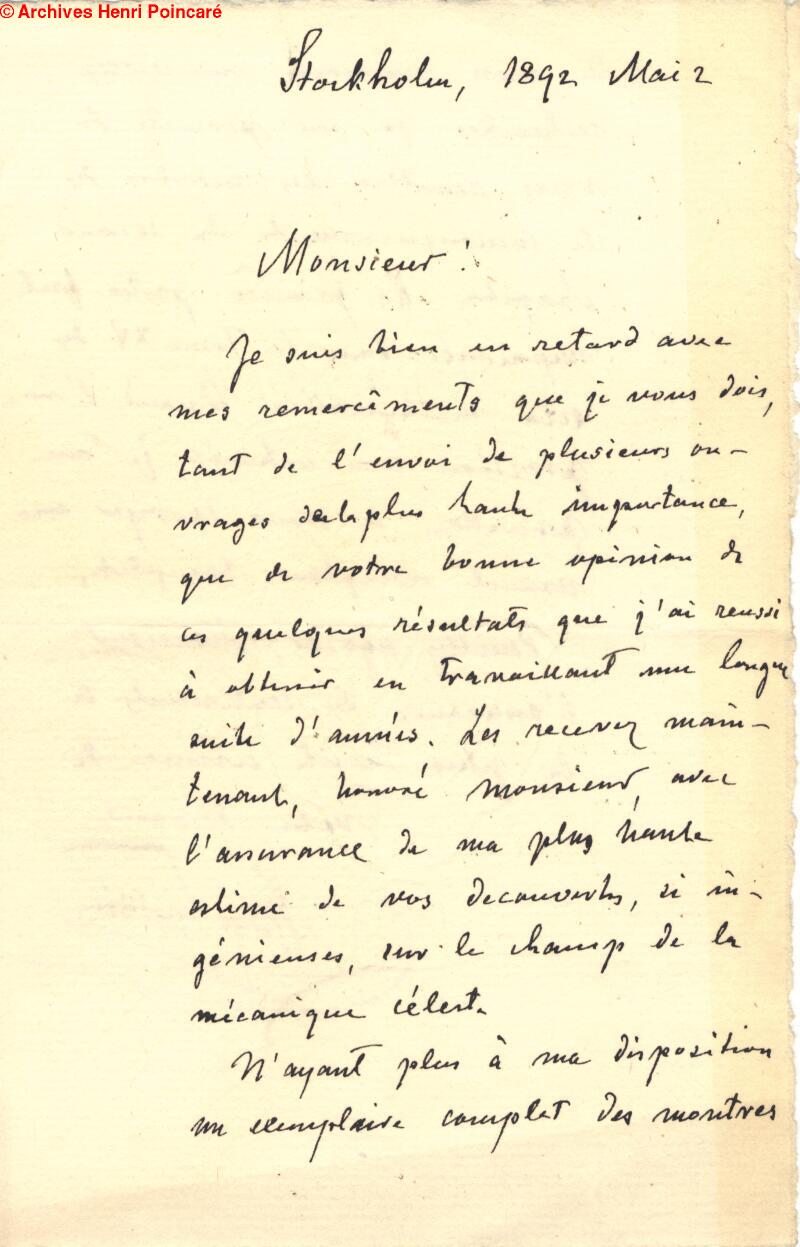 © Archives Henri Poincaré
Stockholm, 1892 Mai 2
Monsieur !
Je suis bien en retard avec
mes remercîments que je vous dois,
tant de l'envoi de plusieurs ou-
vrages de la plus haute importance,
que de votre bonne opinion de
ces quelques résultats que j'ai reussi
à obtenir en travaillant une longue
suite d'années. Les recevez main-
tenant, honoré monsieur, avec
l'assurance de ma plus haute
estime de vos decouvertes, si in-
génieuses, sur le champ de la
mécanique céleste.
N'ayant plus à ma disposition
un exemplaire complet des montres